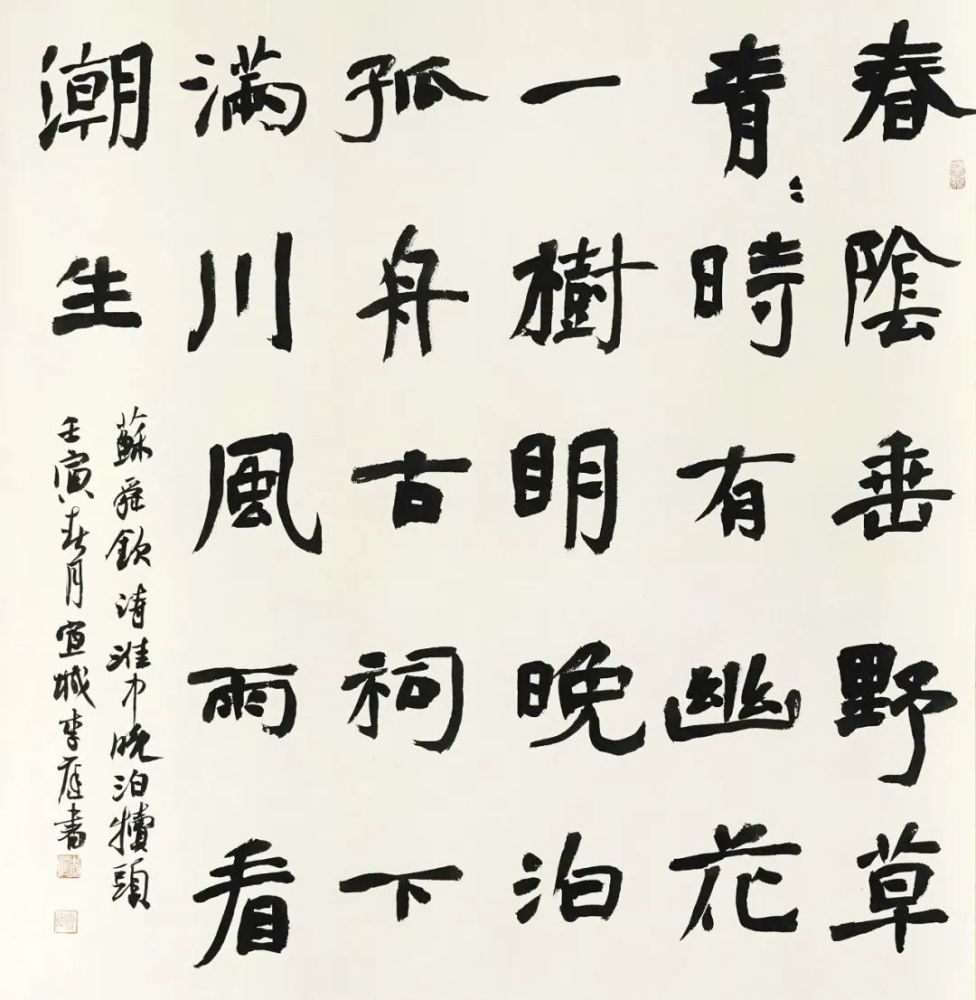 春陰垂野草
青〻時有幽花
一樹眀晚泊
孤舟古祠下
滿川風雨看
潮生
蘇舜欽詩淮中晚泊犢頭
壬寅春月宣城李書